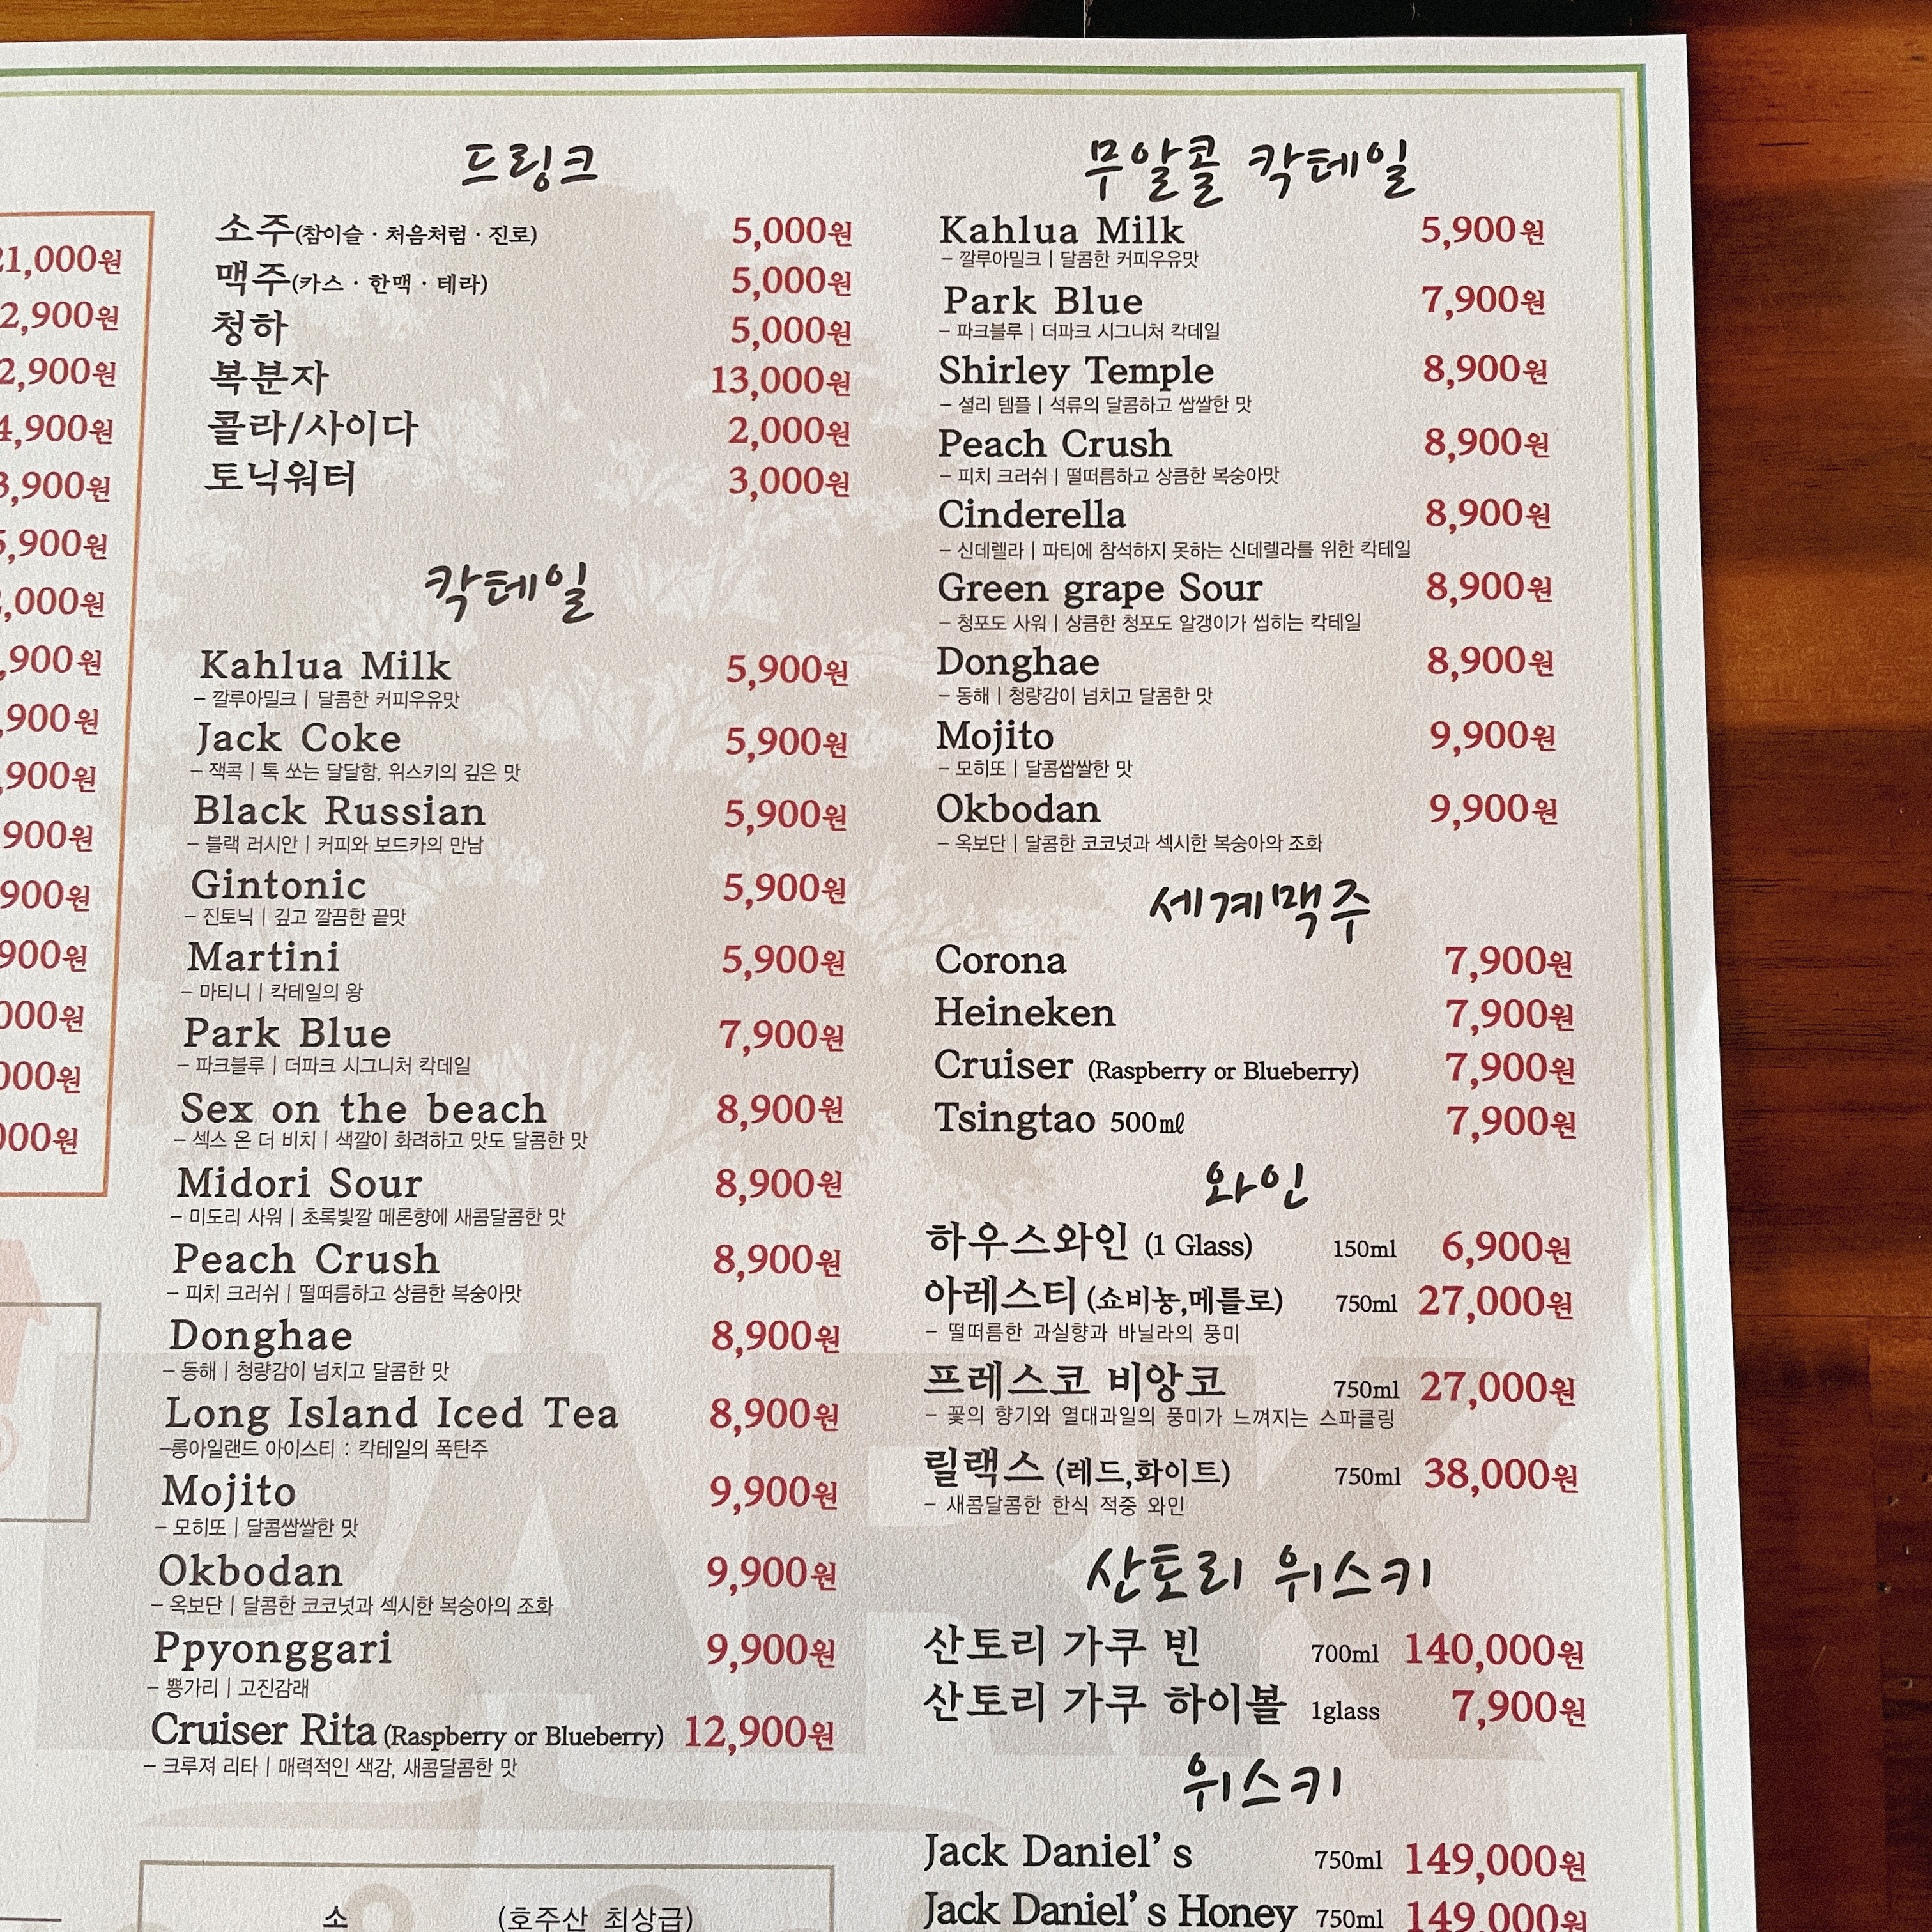 드링크
소주(참이슬 · 처음처럼 · 진로) 5,000원
맥주(카스 · 한맥 · 테라) 5,000원
청하 5,000원
복분자 13,000원
콜라/사이다 2,000원
토닉워터 3,000원
칵테일
Kahlua Milk 5,900원
– 깔루아밀크 | 달콤한 커피우유맛
Jack Coke 5,900원
– 잭콕 | 톡 쏘는 달달함, 위스키의 깊은 맛
Black Russian 5,900원
– 블랙 러시안 | 커피와 보드카의 만남
Gintonic 5,900원
– 진토닉 | 깊고 깔끔한 끝맛
Martini 5,900원
– 마티니 | 칵테일의 왕
Park Blue 7,900원
– 파크블루 | 더파크 시그니처 칵데일
Sex on the beach 8,900원
– 섹스 온 더 비치 | 색깔이 화려하고 맛도 달콤한 맛
Midori Sour 8,900원
– 미도리 사워 | 초록빛깔 메론향에 새콤달콤한 맛
Peach Crush 8,900원
– 피치 크러쉬 | 떨떠름하고 상큼한 복숭아맛
Donghae 8,900원
– 동해 | 청량감이 넘치고 달콤한 맛
Long Island Iced Tea 8,900원
–롱아일랜드 아이스티 : 칵테일의 폭탄주
Mojito 9,900원
– 모히또 | 달콤쌉쌀한 맛
Okbodan 9,900원
– 옥보단 | 달콤한 코코넛과 섹시한 복숭아의 조화
Ppyonggari 9,900원
– 뿅가리 | 고진감래
Cruiser Rita (Raspberry or Blueberry) 12,900원
– 크루져 리타 | 매력적인 색감, 새콤달콤한 맛
소 (호주산 최상급)
무알콜 칵테일
Kahlua Milk 5,900원
– 깔루아밀크 | 달콤한 커피우유맛
Park Blue 7,900원
– 파크블루 | 더파크 시그니처 칵데일
Shirley Temple 8,900원
– 셜리 템플 | 석류의 달콤하고 쌉쌀한 맛
Peach Crush 8,900원
– 피치 크러쉬 | 떨떠름하고 상큼한 복숭아맛
Cinderella 8,900원
– 신데렐라 | 파티에 참석하지 못하는 신데렐라를 위한 칵테일
Green grape Sour 8,900원
– 청포도 사워 | 상큼한 청포도 알갱이가 씹히는 칵테일
Donghae 8,900원
– 동해 | 청량감이 넘치고 달콤한 맛
Mojito 9,900원
– 모히또 | 달콤쌉쌀한 맛
Okbodan 9,900원
– 옥보단 | 달콤한 코코넛과 섹시한 복숭아의 조화
세계맥주
Corona 7,900원
Heineken 7,900원
Cruiser (Raspberry or Blueberry) 7,900원
Tsingtao 500㎖ 7,900원
와인
하우스와인 (1 Glass) 150ml 6,900원
아레스티 (쇼비뇽,메를로) 750ml 27,000원
– 떨떠름한 과실향과 바닐라의 풍미
프레스코 비앙코 750ml 27,000원
– 꽃의 향기와 열대과일의 풍미가 느껴지는 스파클링
릴랙스 (레드,화이트) 750ml 38,000원
– 새콤달콤한 한식 적중 와인
산토리 위스키
산토리 가쿠 빈 700ml 140,000원
산토리 가쿠 하이볼 1glass 7,900원
위스키
Jack Daniel's 750ml 149,000원
Jack Daniel's Honey 750ml 149,000원
PARK